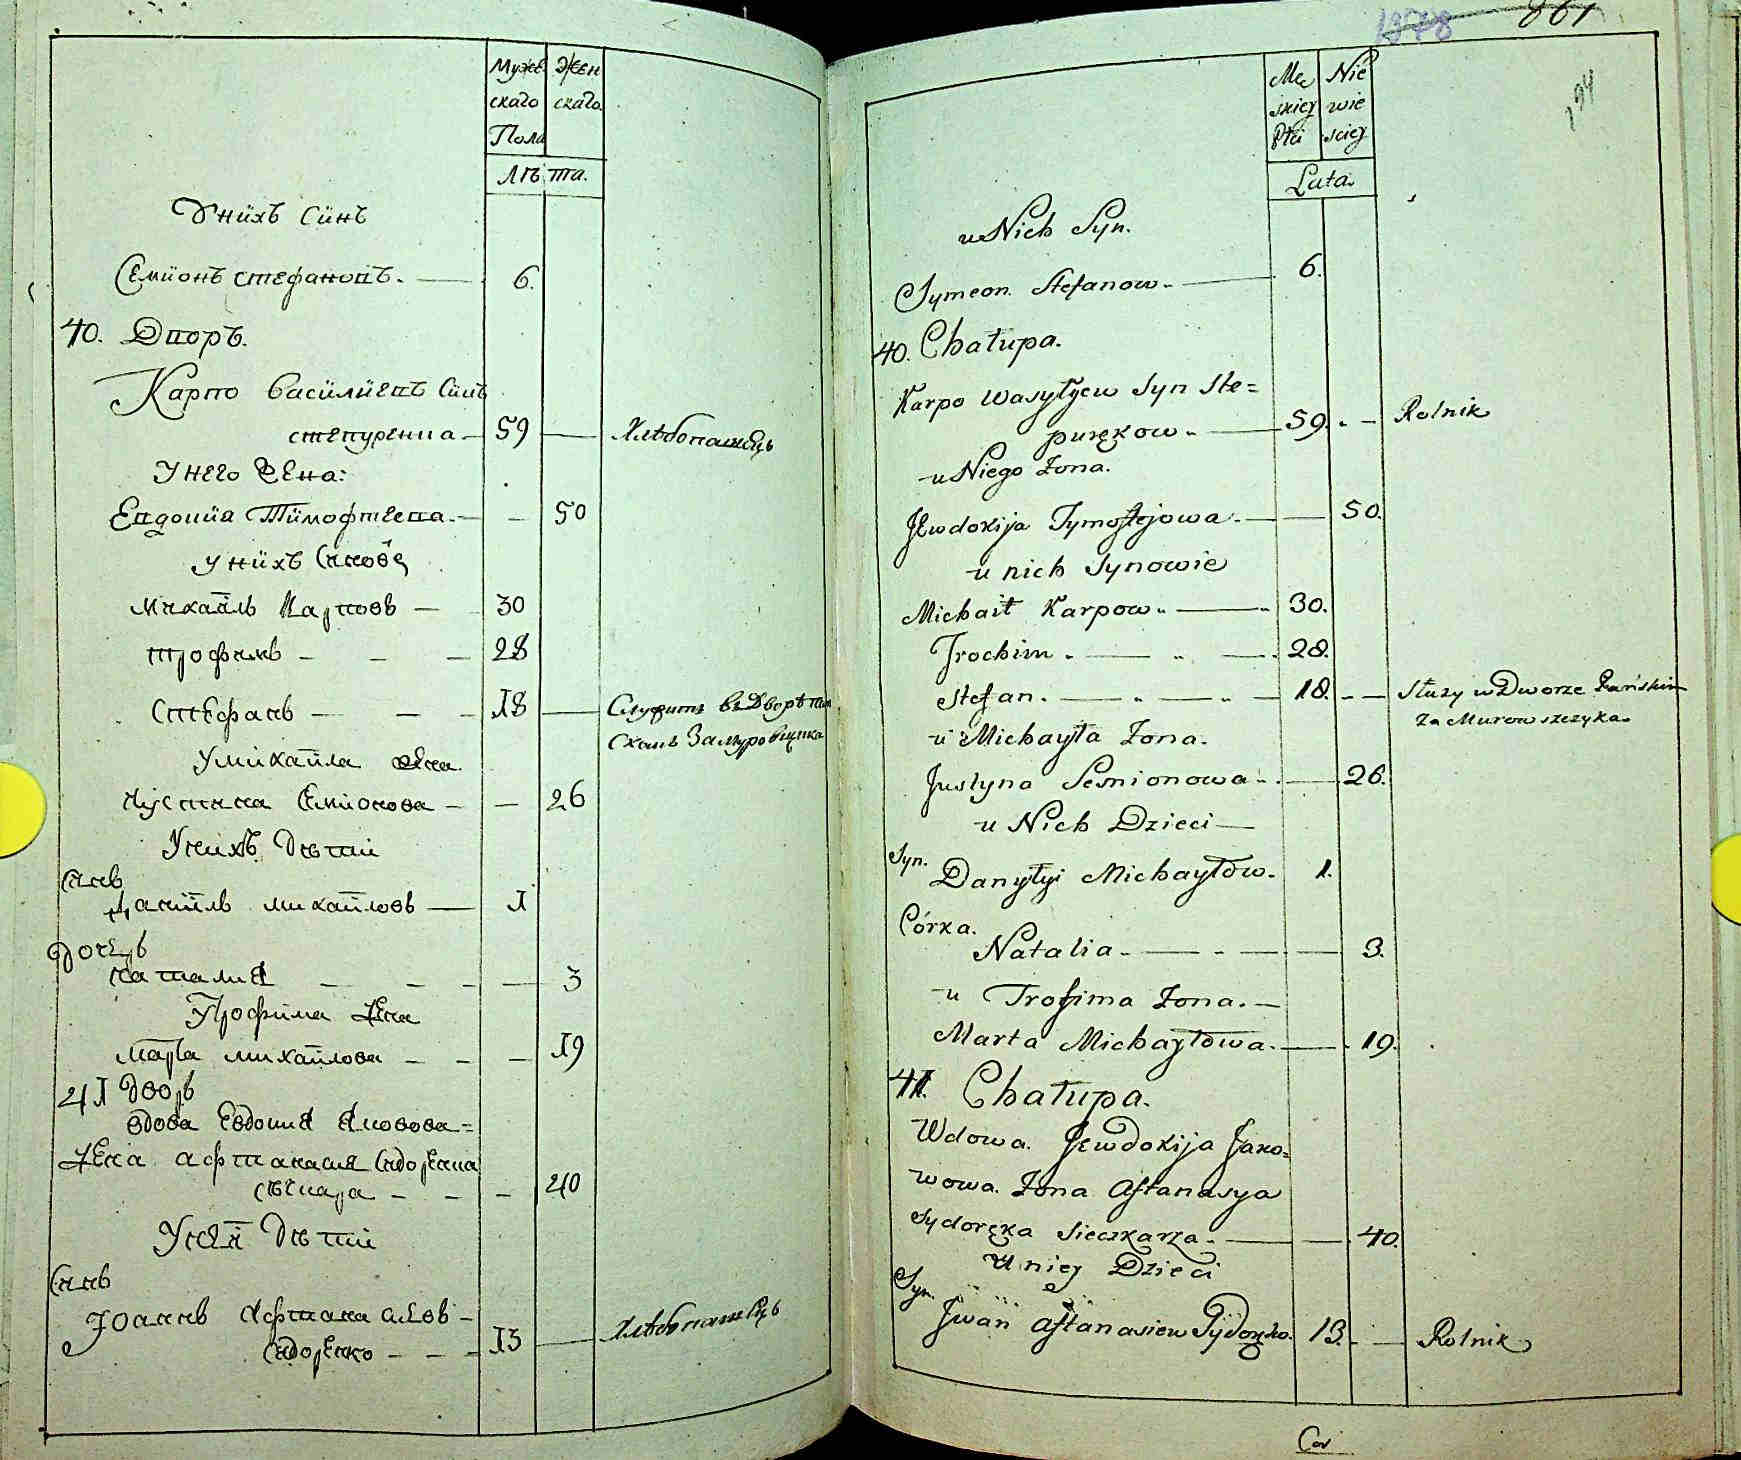 Муже Жен
скаго скаго
Пола
Лѣта.
Унихъ Синъ
Семионъ Стефановъ. — 6.
40. Дворъ.
Карпо Василиевъ Синъ
степуренка — 59 — Хлѣбопашецъ
Унего Жена:
Евдокия Тимофтеева. — — 50
униxъ Синовѣ
Михайлъ Карповъ — 30
трофимъ — — — 28
Стефанъ — — — 18 — Служитъ въ Дворѣ пан
Скомъ За муровщика
Умихайла жена
Иустина Семионова — — 26
Унихъ Дѣти
Синъ
Даниилъ михайловъ — 1
Дочеръ
Наталия — — — — 3
Утрофима жена
Марта михайлова — — — 19
41 Дворъ
вдова Евдокия Яковова=
жена афтанасия Сидоренка
Сѣчкара — — — 40
Унея Дѣти
Синъ
Иоаннъ Афтанасиевъ —
Сидоренко — — — 13 — Хлѣбопашецъ
1378 861
194
Mę Nie
skiey wie
Płci sciey
Lata.
u Nich Syn.
Symeon Stefanow. — 6.
40. Chałupa.
Karpo Wasylyew Syn Ste=
puręków. — 59. - — Rolnik
u Niego Zona.
Jewdokija Tymoftejowa. — — 50.
u nich Synowie
Michaił Karpow. — 30.
Trochim. — — 28.
Stefan. — — — 18. - — Służy w Dworze Pańskim
Za Murowszczyka.
u Michayła Zona.
Justyna Semionowa. — 26.
u Nich Dzieci —
Syn.
Danyłyi Michayłow. 1.
Córka.
Natalia. — — — 3.
u Trofima Zona. —
Marta Michayłowa. — 19.
41. Chałupa.
Wdowa. Jewdokija Jako=
wowa. Zona Aftanasya
Sydoręka Sieczkarza. — — 40.
U niey Dzieci
Syn.
Jwan Aftanasiew Sydoręko. 13. - — Rolnik